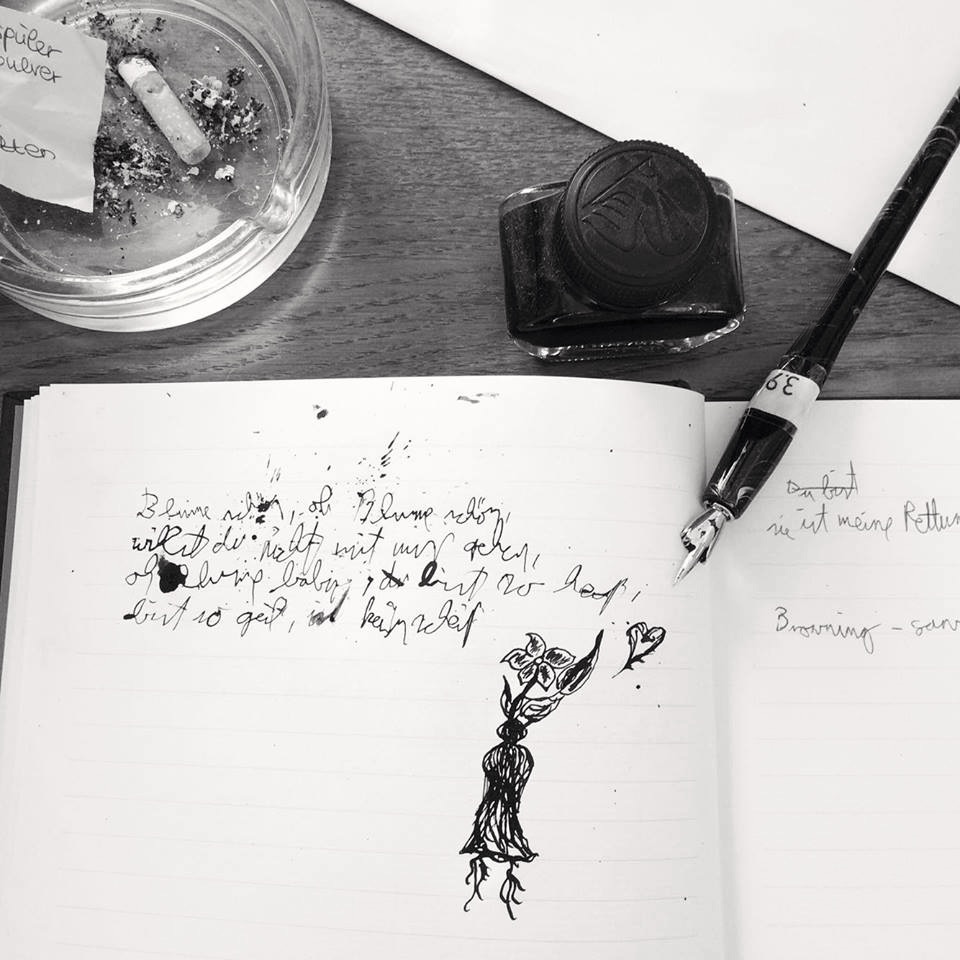 spüler
pulver
sten
3.9
Blume schön, oh Blume schön,
willst du nicht mit mir gehen,
oh Blume baby, du bist so
bist so geil, ist kein
Du bist
sie ist meine Rettun
Browning – san